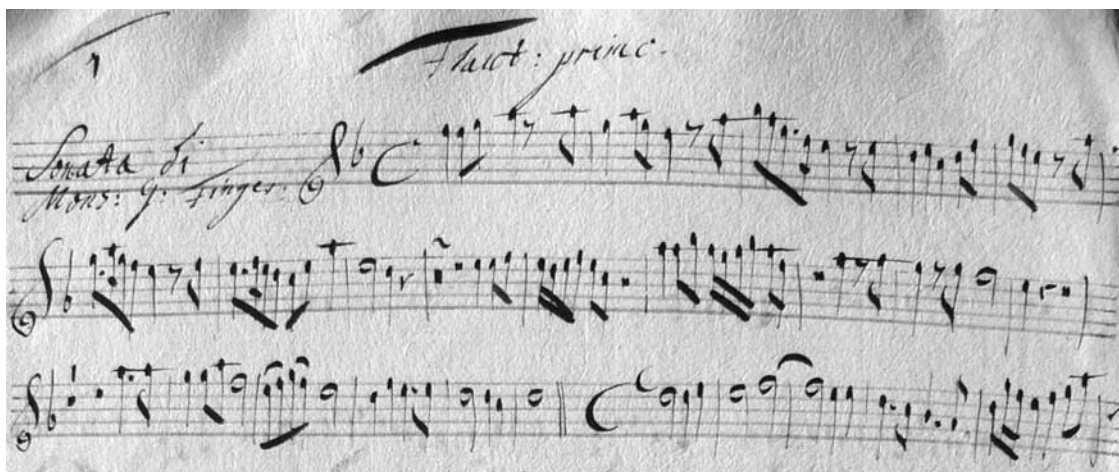 1
Flaut: prim:
Sonata di
Mons: G: Finger.